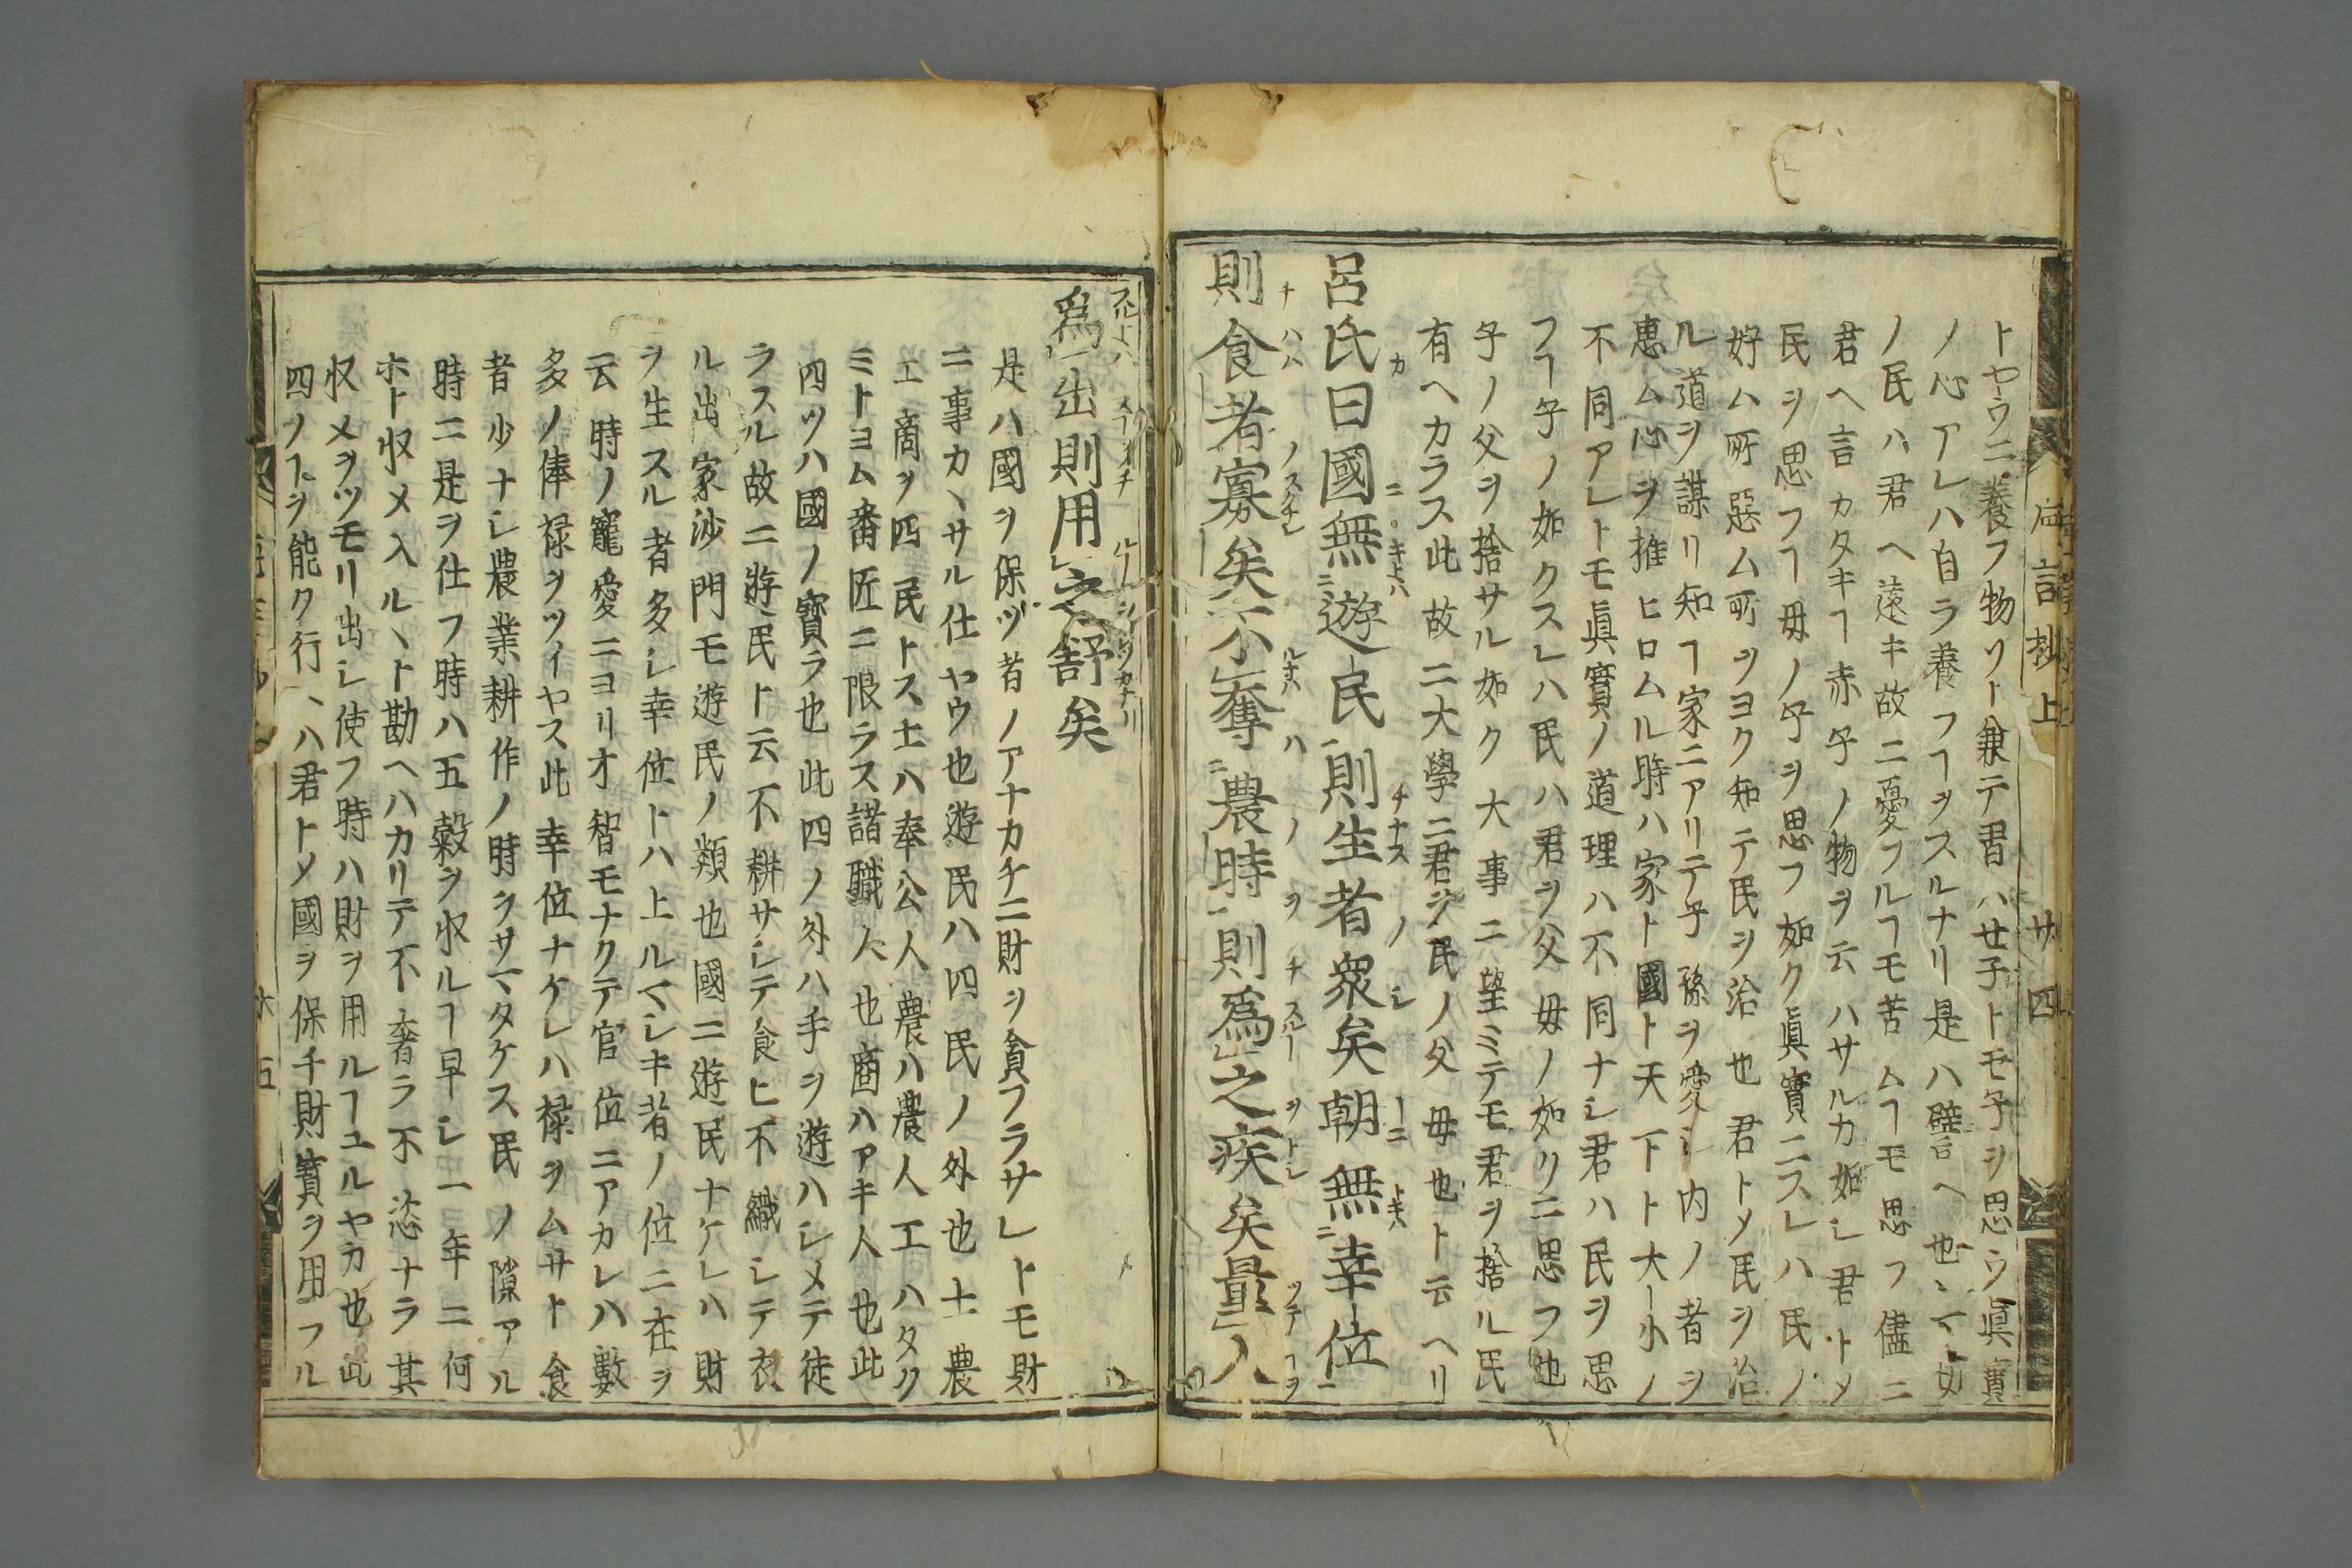 トヤウニ養フ物ソト兼テ習ハせ子トモ子ヲ思ウ眞實
ノ心アレハ自ラ養フヿヲスルナリ是ハ譬ヘ也
ノ民ハ君ヘ遠キ故ニ憂フルヿモ苦ムヿモ思フ儘ニ
君ヘ言カタキヿ赤子ノ物ヲ云ハサルカ如シ君トメ
民ヲ思フヿ毋ノ子ヲ思フ如ク眞實ニスレハ民ノ
好ム所惡ム所ヲヨク知テ民ヲ治也君トメ民ヲ治
ル道ヲ謀リ知ヿ家ニアリテ子孫ヲ愛シ内ノ者ヲ
惠ム心ヲ推ヒロムル時ハ家ト國ト天下ト大小ノ
不同アレトモ眞實ノ道理ハ不同ナシ君ハ民ヲ思
フヿ子ノ如クスレハ民ハ君ヲ父毋ノ如クニ思フ也
子ノ父ヲ捨サル如ク大事ニ望ミテモ君ヲ捨ル民
有ヘカラス此故ニ大學ニ君ヲ民ノ父毋也ト云ヘリ
呂氏曰國無遊民則生者衆矣朝無幸位
則食者寡矣不奪農時則爲之疾矣量入
爲出則用之舒矣
是ハ國ヲ保ツ者ノアナカチニ財ヲ貪フラサレトモ財
ニ事カヽサル仕ヤウ也遊民ハ四民ノ外也士農
工商ヲ四民トス士ハ奉公人農ハ農人工ハタク
ミトヨム番匠ニ限ラス諸職人也商ハアキ人也此
四ツハ國ノ寳ラ也此四ノ外ハ手ヲ遊ハシメテ徒
ラスル故ニ遊民ト云不耕サシテ食ヒ不織シテ衣
ル出家沙門モ遊民ノ類也國ニ遊民ナケレハ財
ヲ生スル者多シ幸位トハ上ルマシキ者ノ位ニ在ヲ
云時ノ寵愛ニヨリオ智モナクテ官位ニアカレハ數
多ノ俸禄ヲツイヤス此幸位ナケレハ禄ヲムサト食
者少ナシ農業耕作ノ時ヲサマタケス民ノ隙アル
時ニ是ヲ仕フ時ハ五穀ヲ収ルヿ早シ一年ニ何
ホト収メ入ルヽト勘ヘハカリテ不奢ラ不恣ナラ其
収メヲツモリ出シ使フ時ハ財ヲ用ルヿユルヤカ也此
四ノヿヲ能ク行ヽハ君トメ國ヲ保チ財寳ヲ用フル